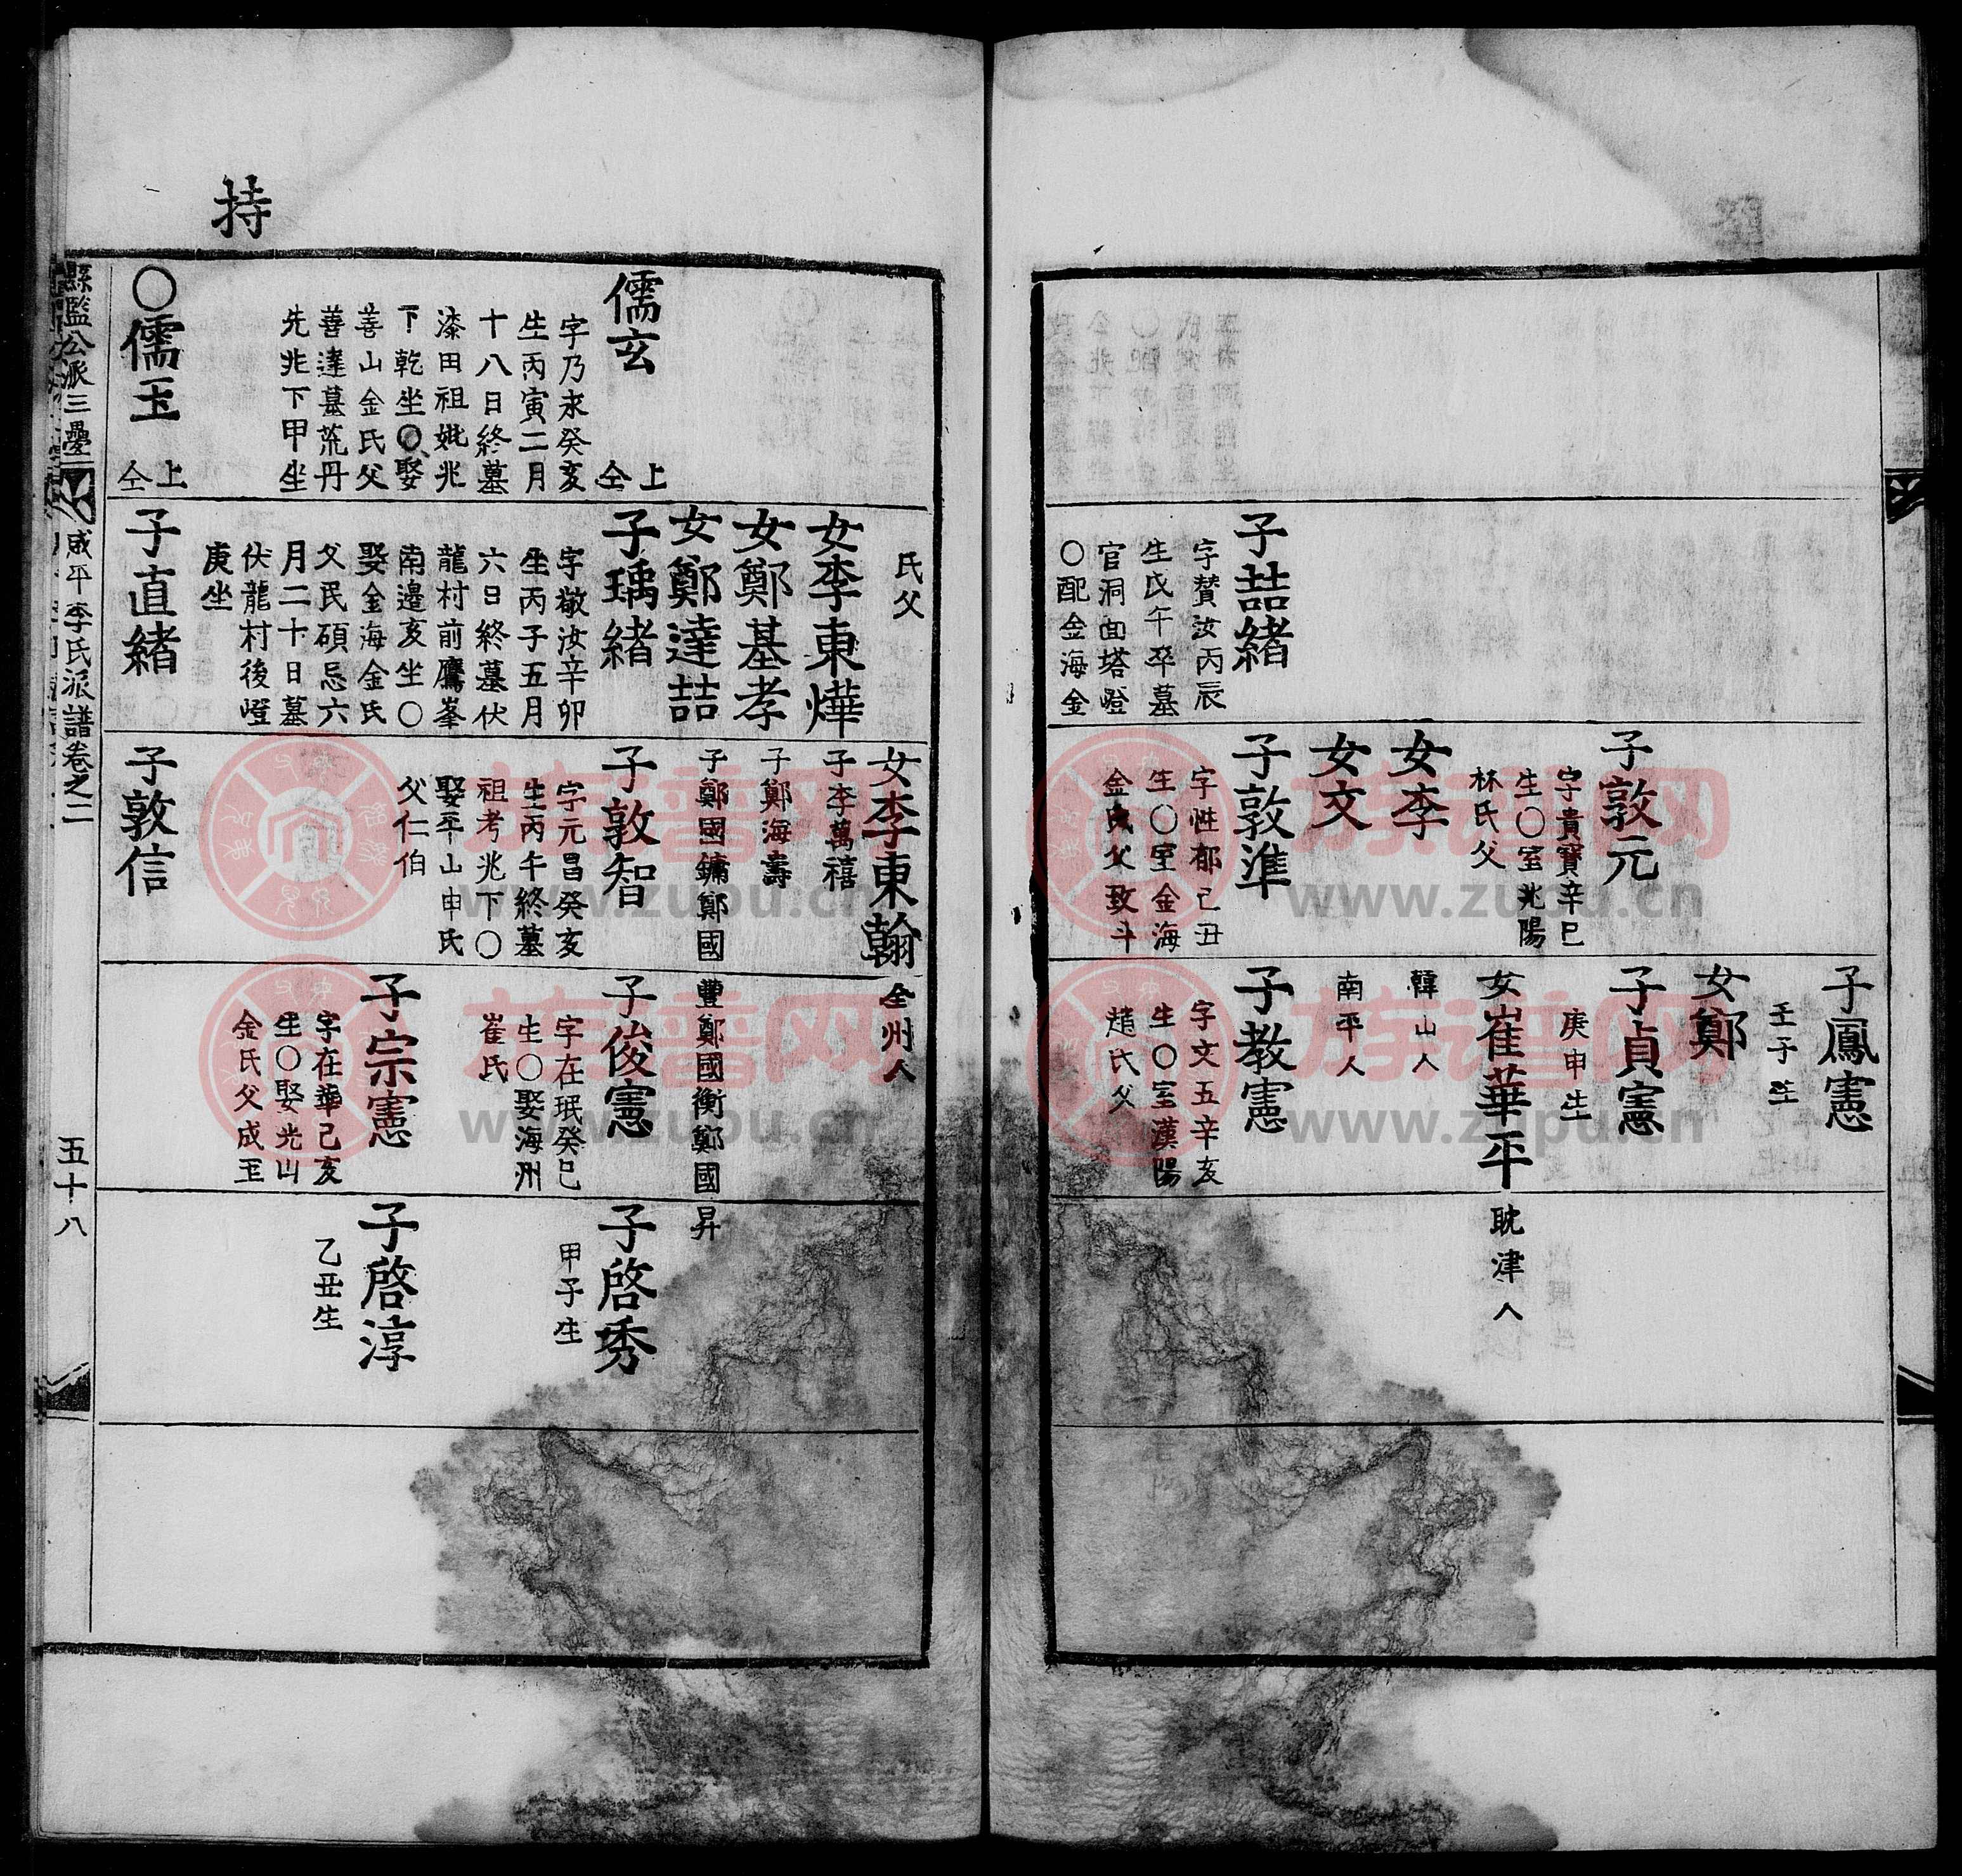 子喆緒
字贊汝丙辰
生戊午卒墓
官洞面塔嶝
○配金海金
子敦元
字貴寶辛巳
生○室兆陽
林氏父
女李
女文
子敦準
字性郁己丑
生○室金海
金氏父致斗
子鳳憲
壬子生
女鄭
子貞憲
庚申生
女崔華平
耽津人
韓山人
南平人
子教憲
字文五辛亥
生○室漢陽
趙氏父
持
儒玄
上
仝
字乃永癸亥
生丙寅二月
十八日終墓
漆田祖妣兆
下乾坐○娶
善山金氏父
善達墓荒丹
先兆下甲坐
○儒玉
上
仝
氏父
女李東燁
女鄭基孝
女鄭達喆
子瑀緒
字敬汝辛卯
生丙子五月
六日終墓伏
龍村前鷹峯
南邊亥坐○
娶金海金氏
父民碩忌六
月二十日墓
伏龍村後嶝
庚坐
子直緒
女李東翰
子李萬禧
子鄭海壽
子鄭國鏞鄭國
子敦智
字元昌癸亥
生丙午終墓
祖考兆下○
娶平山申氏
父仁伯
子敦信
全州人
豐鄭國衡鄭國
子俊憲
字在珉癸巳
生○娶海州
崔氏
子宗憲
字在華己亥
生○娶光山
金氏父成玉
昇
子啓秀
甲子生
子啓淳
乙丑生
縣監公派三疊
咸平李氏派譜卷之二
五十八
族谱网
www.zupu.cn
族谱网
www.zupu.cn
族谱网
www.zupu.cn
族谱网
www.zupu.cn